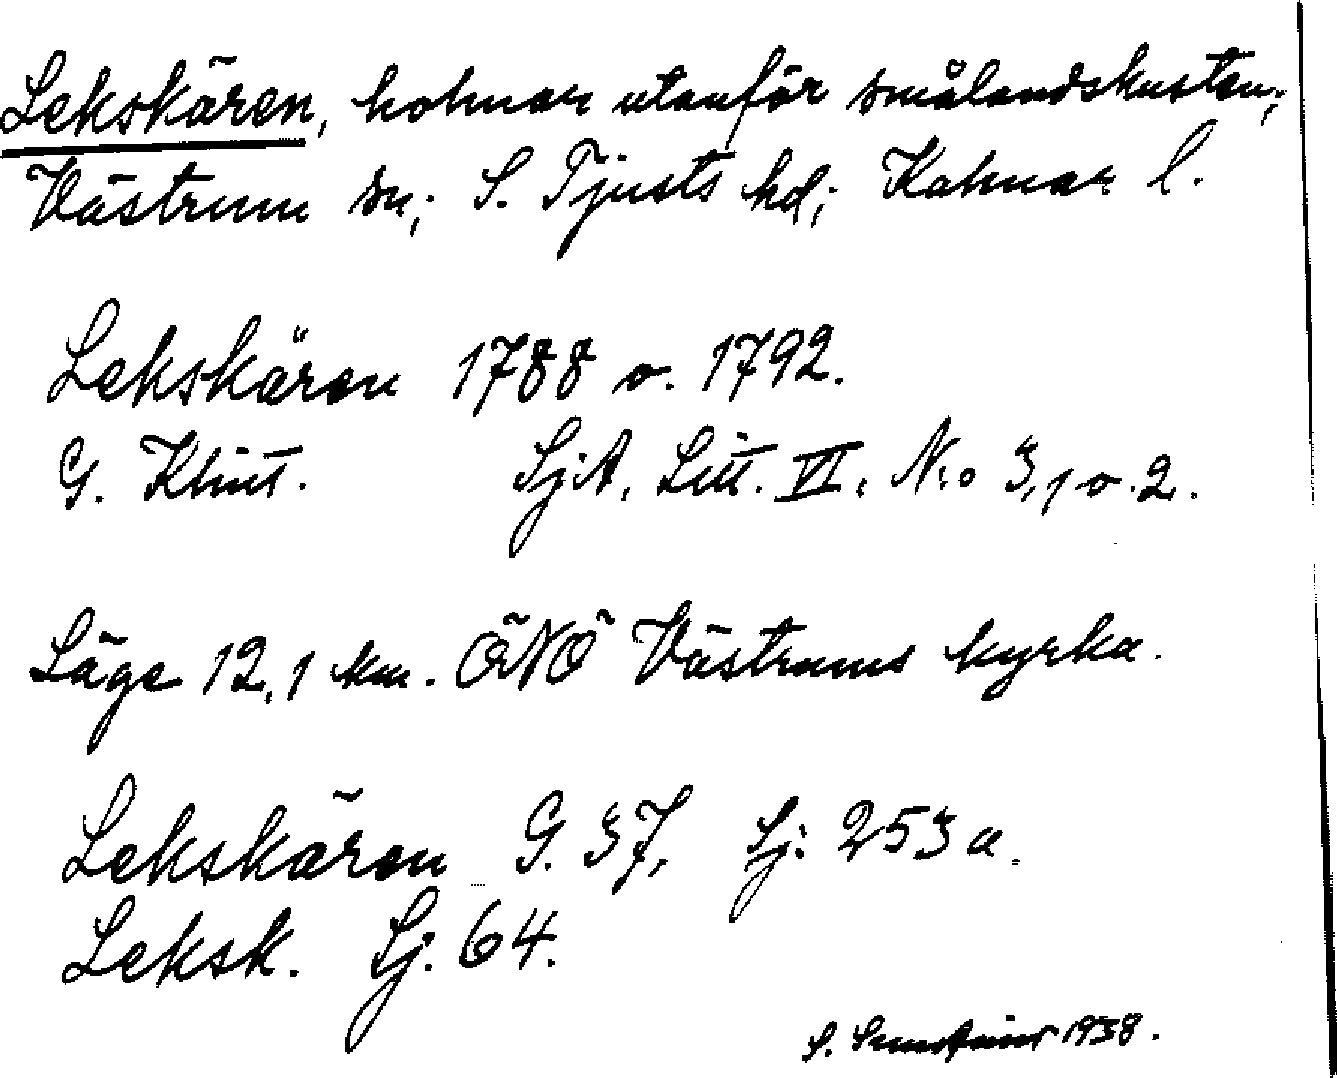 Lekskären, holmar utanför smålandskusten;
Västrum sn; S. Tjusts hd; Kalmar l.
Lekskären 1788 o. 1792.
G. Klint. SjA. Litt. VI. N:o 3,1 o. 2.
Läge 12,1 km. ÖNÖ Västrums kyrka.
Lekskären G. 37, Sj: 253 a.
Leksk. Sj. 64.
S. 1938.